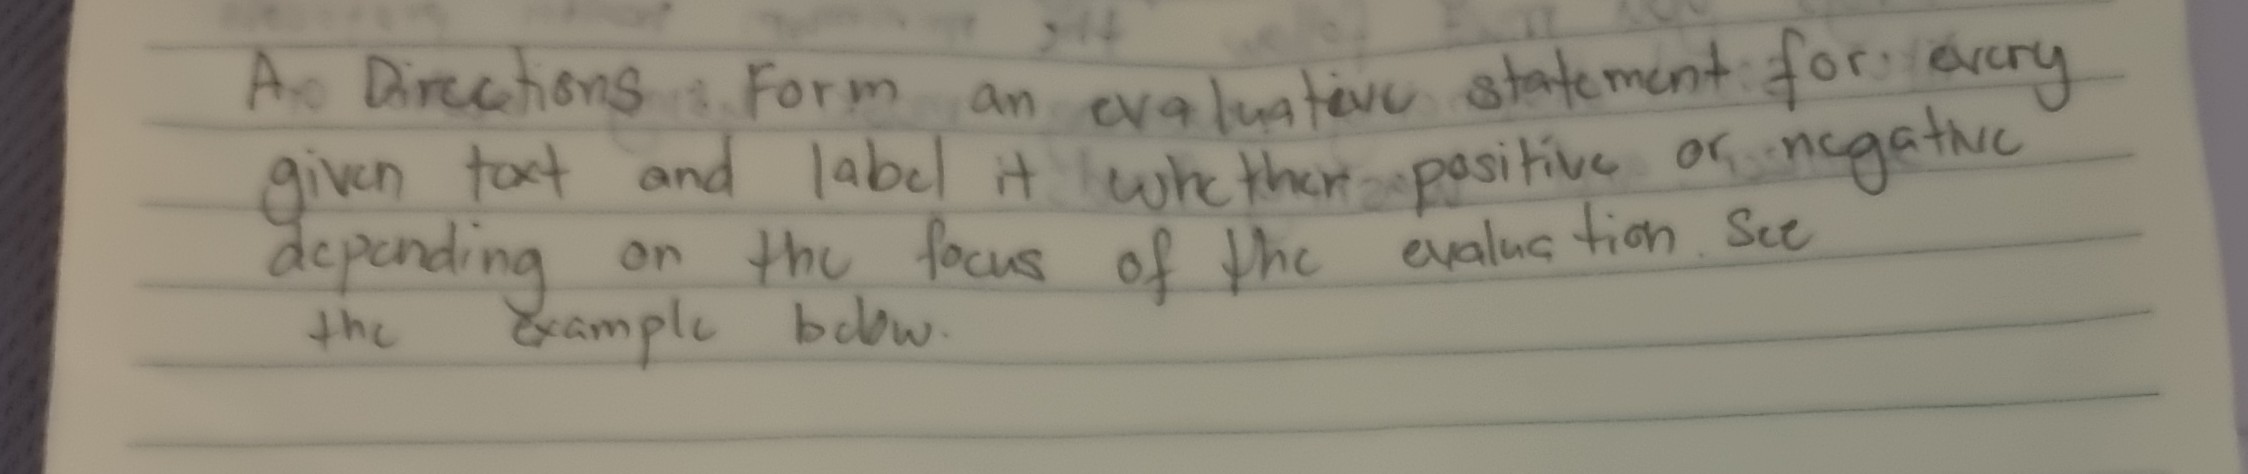 A. Directions: Form an evaluative statement for every
given text and label it whether positive or negative
depending on the focus of the evaluation. See
the example below.